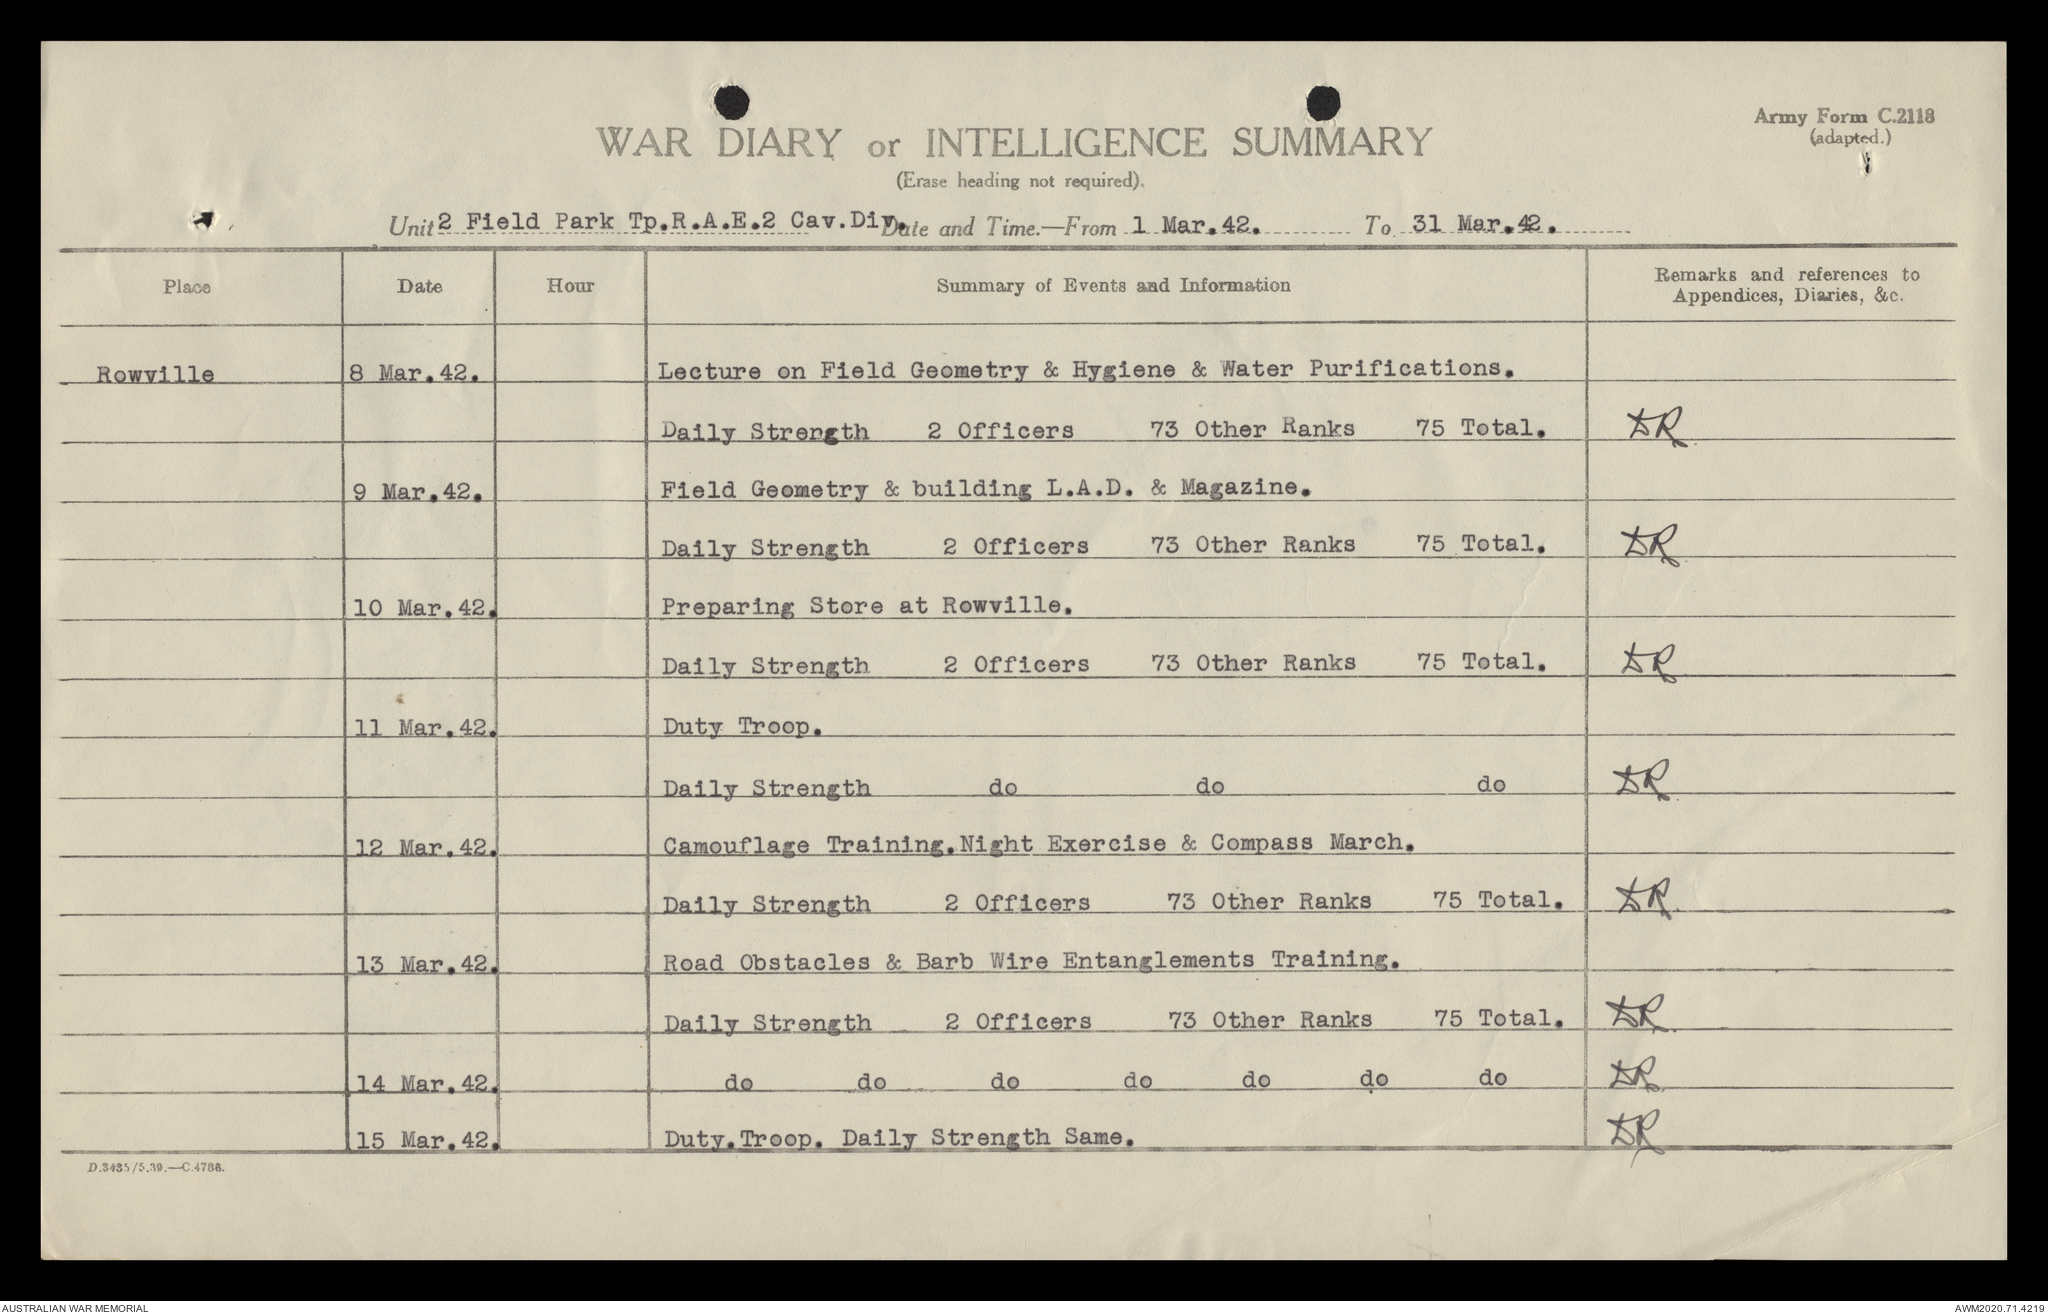 Army Form C.2118
(adapted.)
WAR DIARY or INTELLIGENCE SUMMARY
(Erase heading not required).
Unit 2 Field Park Tp.R.A.E.2 Cav.Div. Date and Time.—From 1 Mar.42. To 31 Mar.42.
Place Date Hour Summary of Events and Information Remarks and references to
Appendices, Diaries, &c.
Rowville 8 Mar.42. Lecture on Field Geometry & Hygiene & Water Purifications.
Daily Strength 2 Officers 73 Other Ranks 75 Total. DR
9 Mar.42. Field Geometry & building L.A.D. & Magazine.
Daily Strength 2 Officers 73 Other Ranks 75 Total. DR
10 Mar.42. Preparing Store at Rowville.
Daily Strength 2 Officers 73 Other Ranks 75 Total. DR
11 Mar.42. Duty Troop.
Daily Strength do do do DR
12 Mar.42. Camouflage Training.Night Exercise & Compass March.
Daily Strength 2 Officers 73 Other Ranks 75 Total. DR
13 Mar.42. Road Obstacles & Barb Wire Entanglements Training.
Daily Strength 2 Officers 73 Other Ranks 75 Total. DR
14 Mar.42. do do do do do do do DR
15 Mar.42. Duty.Troop. Daily Strength Same. DR
D.3435/5.39.—C.4788.
AUSTRALIAN WAR MEMORIAL AWM2020.71.4219